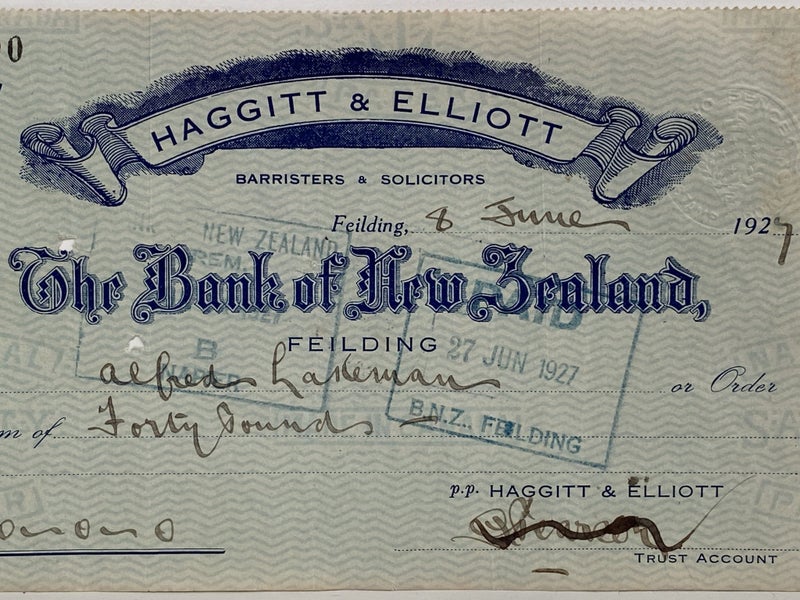 HAGGITT & ELLIOTT
BARRISTERS & SOLICITORS
Feilding, 8 June 1927
NEW ZEALAND
The Bank of New Zealand,
PAID
FEILDING
B
27 JUN 1927
NAPIER
Alfred Lakeman or Order
B.N.Z., FEILDING
m of Forty Pounds
p.p. HAGGITT & ELLIOTT
TRUST ACCOUNT